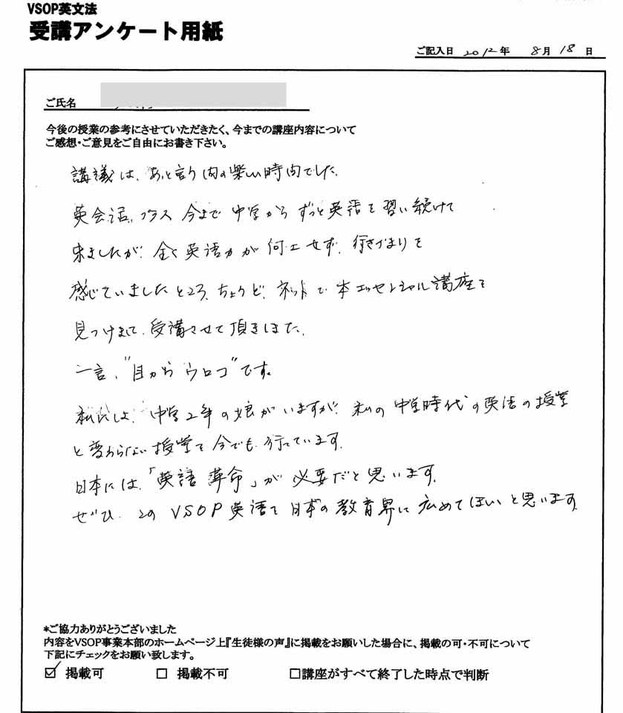 VSOP英文法
受講アンケート用紙
ご記入日 2012年 8月 18日
ご氏名
今後の授業の参考にさせていただきたく、今までの講座内容について
ご感想・ご意見をご自由にお書き下さい。
講議は、あっと言う間の楽しい時間でした。
英会話、プラス 今まで 中学から ずっと英語を習い続けて
来ましたが、全く英語力が向上せず、行きづまりを
感じていましたところ、ちょうど、ネットで本エッセンシャル講座を
見つけまして、受講させて頂きました。
一言、"目からウロコ"です。
私には、中学2年の娘がいますが、私の中学時代の英語の授業
と変わらない授業を今でも行っています。
日本には、「英語革命」が必要だと思います。
ぜひ、このVSOP英語を日本の教育界に広めてほしいと思います
*ご協力ありがとうございました
内容をVSOP事業本部のホームページ上『生徒様の声』に掲載をお願いした場合に、掲載の可・不可について
下記にチェックをお願い致します。
☑ 掲載可 □ 掲載不可 □講座がすべて終了した時点で判断